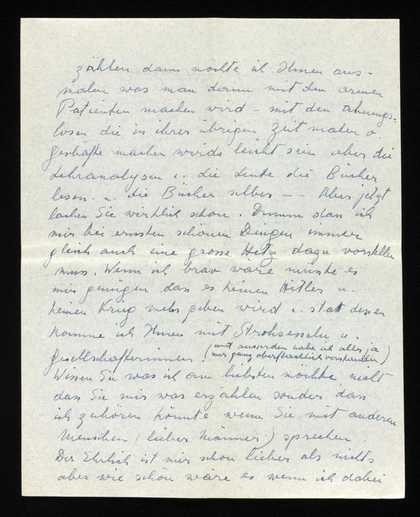 zählen dann möchte ich Ihnen aus-
malen was man dann mit den armen
Patienten machen wird – mit den Ahnungs-
losen die in ihrer übrigen Zeit malen o.
geschäfte machen wirds leicht sein aber die
Lehranalysen u. die Leute die Bücher
lesen. u. die Bücher selber – – Aber jetzt
lachen Sie wirklich schon. Dumm dass ich
mir bei ernsten schönen Dingen immer
gleich auch eine grosse Hetz dazu vorstellen
muss. Wenn ich brav wäre müsste es
mir genügen das es keinen Hitler u.
keinen Krieg mehr geben wird u. statt dessen
komme ich Ihnen mit Strohsesseln u.
gesellschafterinnen (mit anderen habe ich alles ja
nur ganz oberflächlich verstanden)
Wissen Sie was ich am liebsten möchte nicht
das Sie mir was erzählen sondern dass
ich zuhören könnte wenn Sie mit anderen
Menschen (lieber Männer) sprechen
Der Ehrlich ist mir schon lieber als nichts
aber wie schön wäre es wenn ich dabei